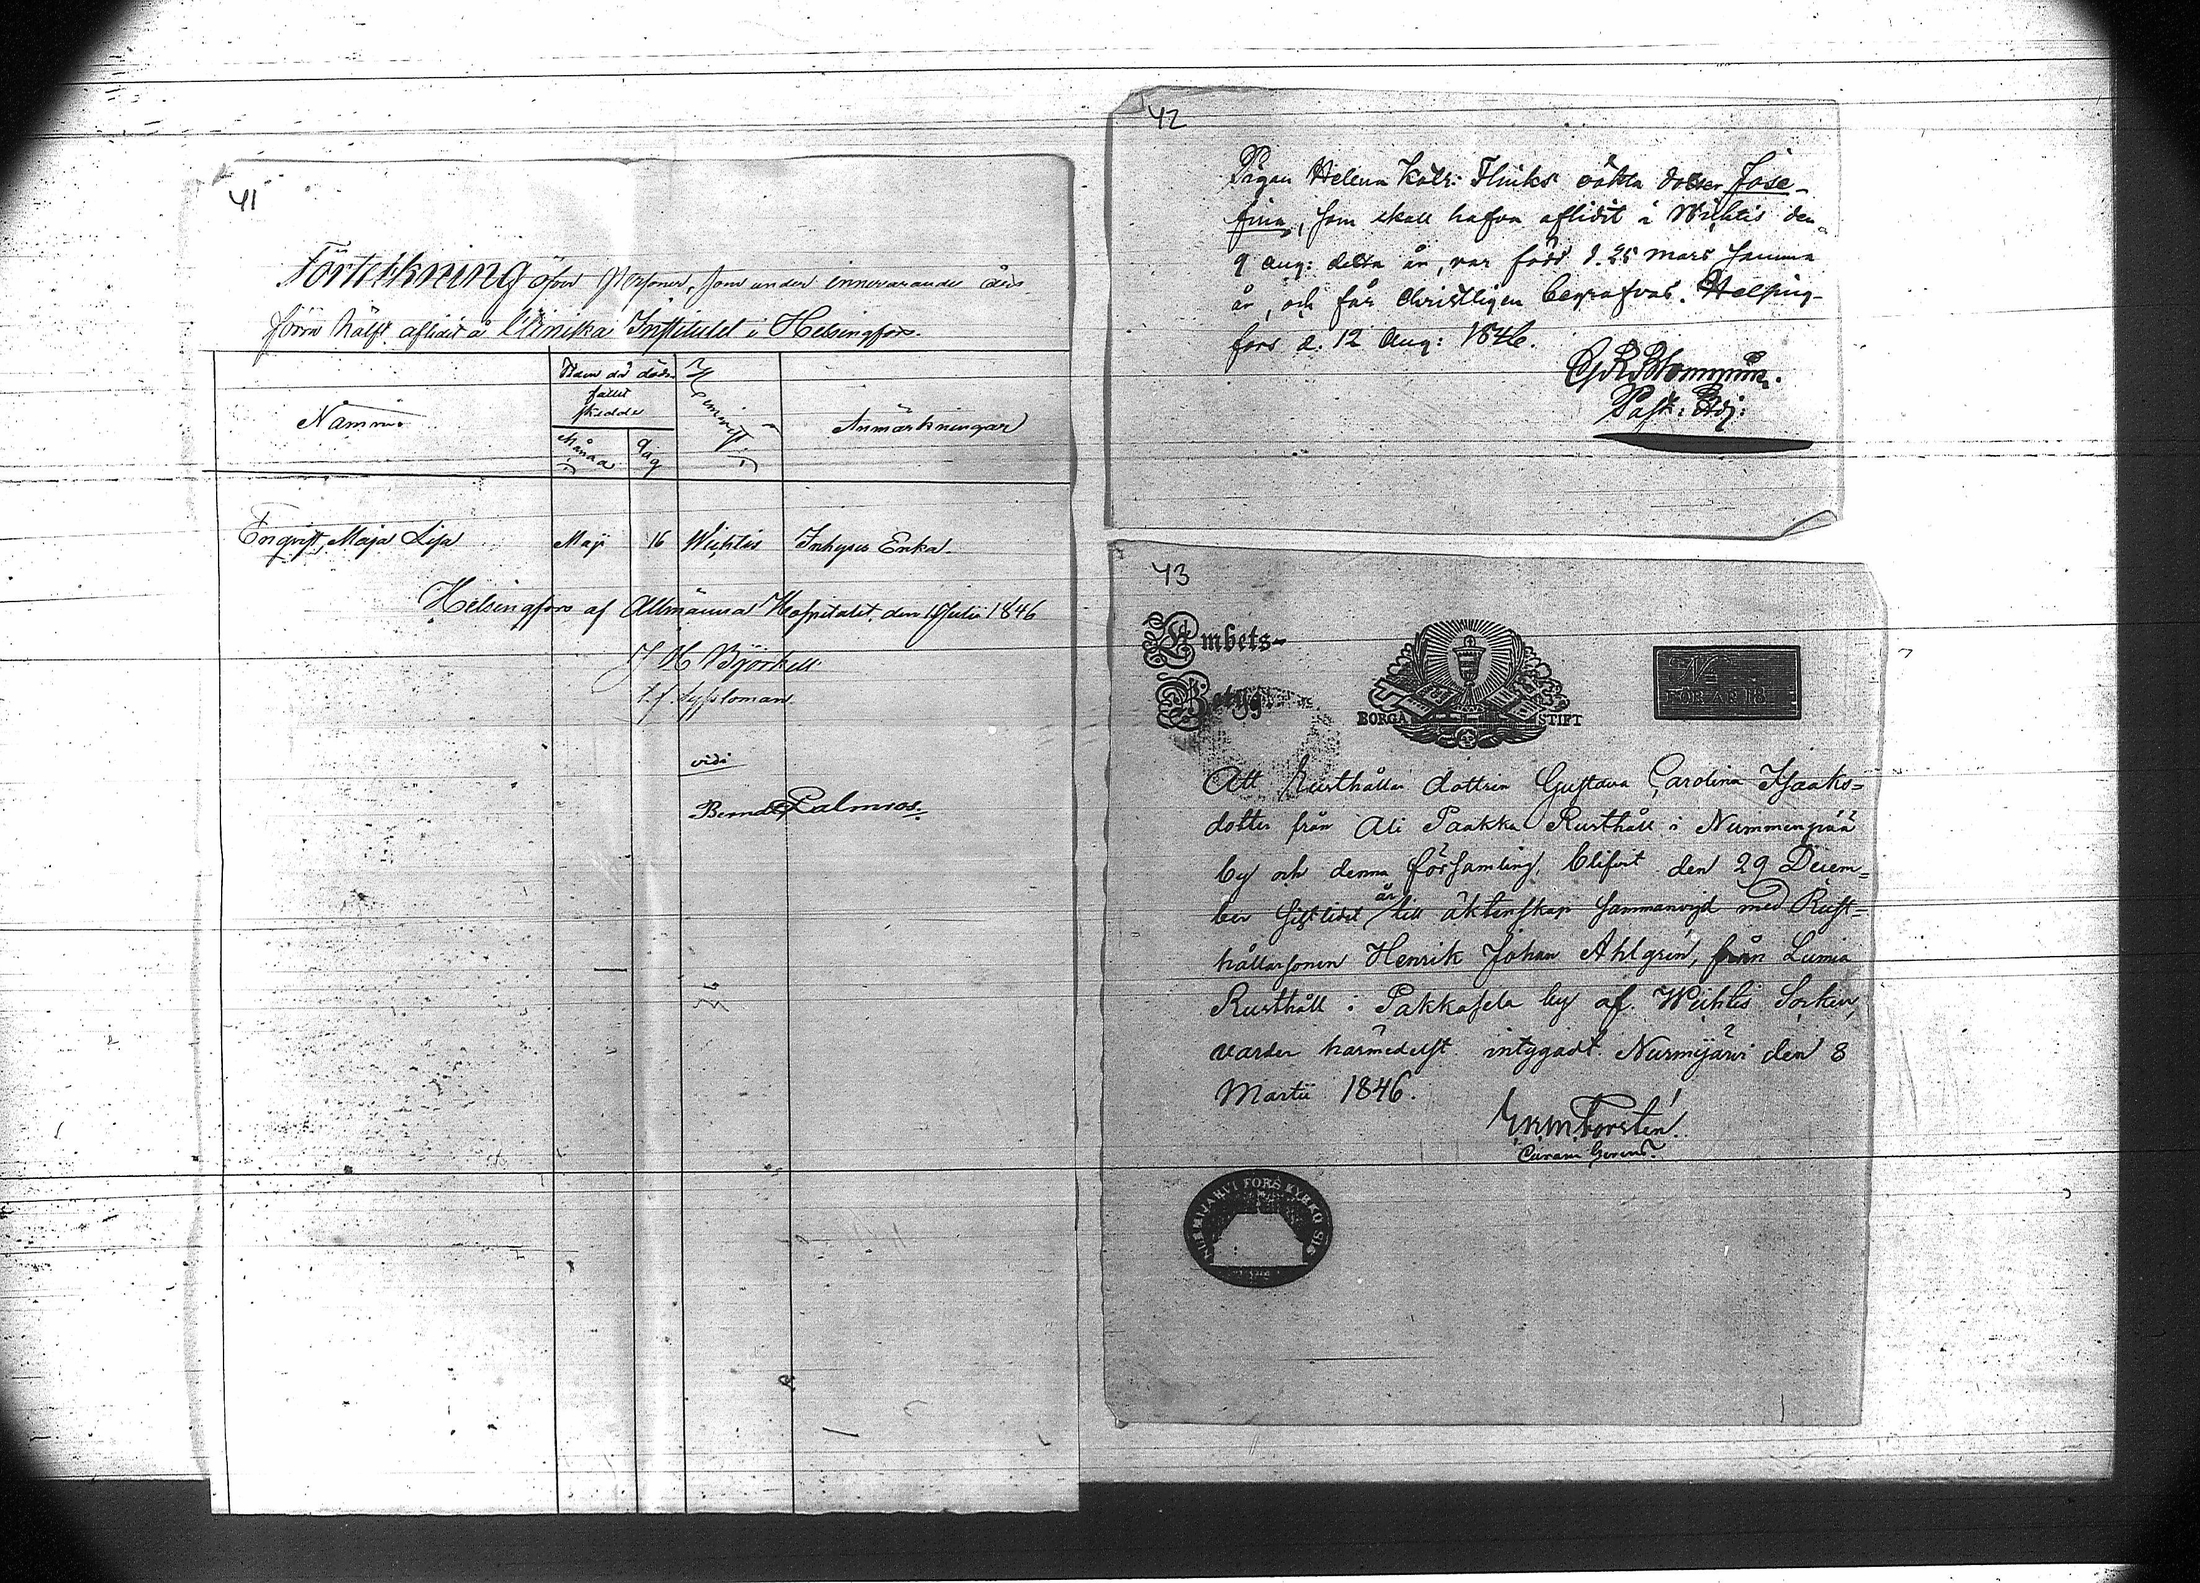 41
Förtekning öfver Personer, som under innevarande års
förra hälft aflidit å Cliniska Institutet i Helsingfors.
Namn
Anmärkningar
Månad
dag
Hemvist
Enqvist, Maja Lisa Maji 16 Wichtis Inhyses Enka.
Helsingfors af Allmänna Hospitalet, den 1 Julii 1846
J H Björkell
t.f. sysloman
vidi
Palmros.
42
Pigan Helena Kolr: Flinks oäkta dotter Jose-
fina, som skall hafva aflidit i Wichtis den
9 Aug: detta år, var född d. 25 Mars samma
år, och får Christligen begrafvas. Helsing-
fors d. 12 Aug: 1846.
Past: Adj:
43
Embets-
Betyg
BORGÅ STIFT
FÖR ÅR 18
Att Rusthållar dottren Gustava Carolina Isaaks=
dotter från Ali Paakka Rusthåll i Nummenpää
by och denna församling, blifvit den 29 Decem=
ber sistlidet år till äktenskap sammanvigd med Rust=
hållarsonen Henrik Johan Ahlgren, från Lumia
Rusthåll i Pakkasela by af Wichtis Socken,
varder härmedelst intygadt. Nurmijärvi den 8
Martii 1846.
Forstén.
NURMIJÄRVI FÖRS KYRKO SIG